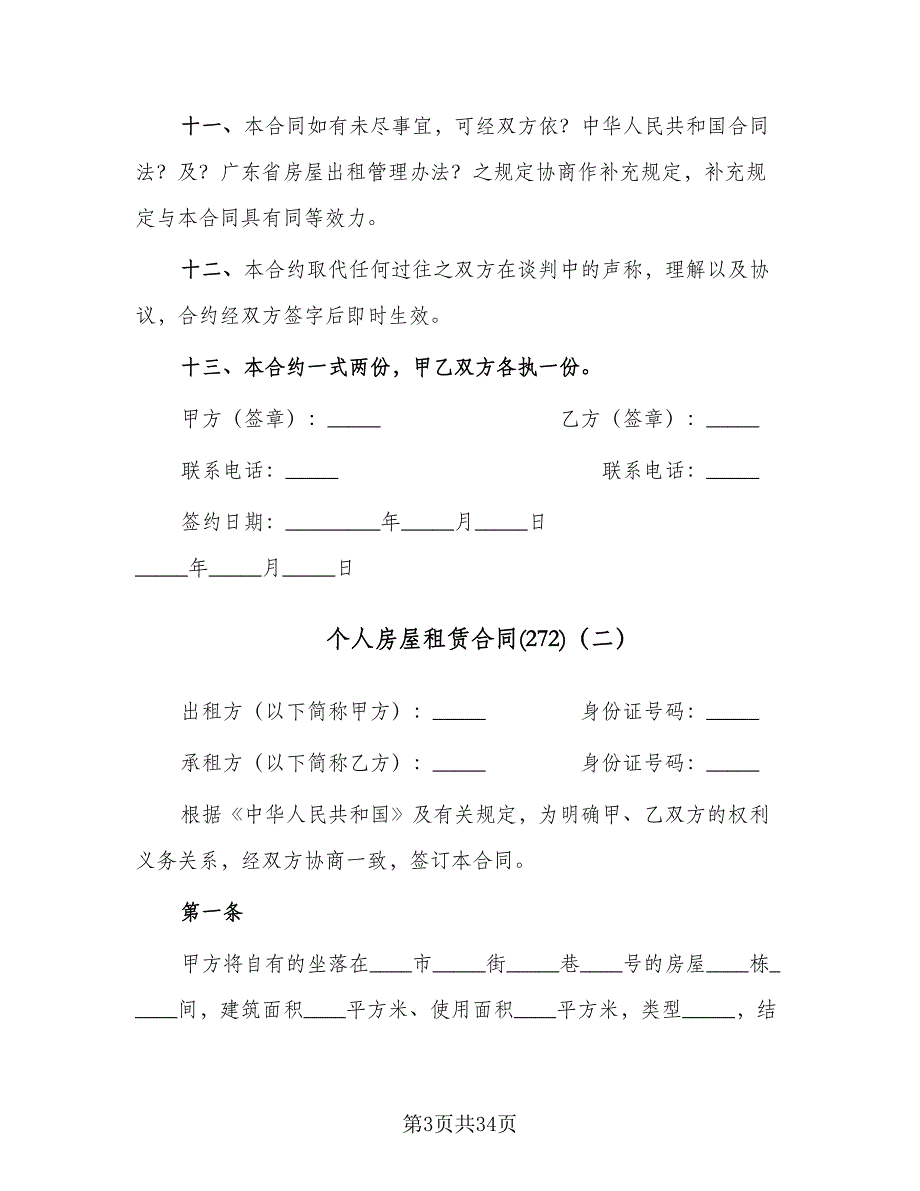 十一、本合同如有未尽事宜，可经双方依？中华人民共和国合同
法？及？广东省房屋出租管理办法？之规定协商作补充规定，补充规
定与本合同具有同等效力。
十二、本合约取代任何过往之双方在谈判中的声称，理解以及协
议，合约经双方签字后即时生效。
十三、本合约一式两份，甲乙双方各执一份。
甲方（签章）：_____ 乙方（签章）：_____
联系电话：_____ 联系电话：_____
签约日期：_________年_____月_____日
_____年_____月_____日
个人房屋租赁合同(272)（二）
出租方（以下简称甲方）：_____ 身份证号码：_____
承租方（以下简称乙方）：_____ 身份证号码：_____
根据《中华人民共和国》及有关规定，为明确甲、乙双方的权利
义务关系，经双方协商一致，签订本合同。
第一条
甲方将自有的坐落在____市_____街_____巷____号的房屋____栋_
____间，建筑面积____平方米、使用面积____平方米，类型_____，结
第3页共34页